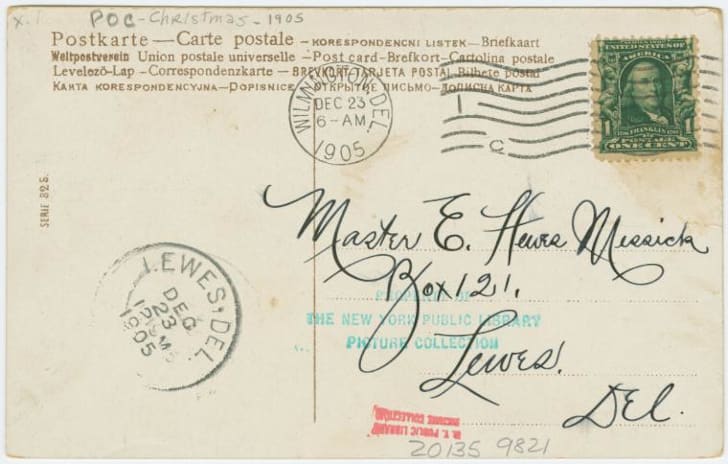 x.1
POC - Christmas - 1905
Postkarte — Carte postale - KORESPONDENCNI LISTEK — Briefkaart
Weltpostverein Union postale universelle — Post card - Brefkort - Cartolina postale
Levelező-Lap - Correspondenzkarte - BREVKORT - TARJETA POSTAL Bilhete postal
KARTA KORESPONDENCYJNA — DOPISNICE ОТКРЫТОЕ ПИСЬМО — ДОПИСНА КАРТА
WILMINGTON, DEL.
DEC 23
6 - AM
1905
1
C
UNITED STATES OF
AMERICA
1706 FRANKLIN 1790
POSTAGE
1 ONE CENT 1
SERIE 825.
LEWES, DEL.
DEC
23
1905
Master E. Hewes Messick
Box 121.
Lewes.
Del.
PROPERTY OF
THE NEW YORK PUBLIC LIBRARY
PICTURE COLLECTION
N. Y. PUBLIC LIBRARY
PICTURE COLLECTION
20135 9821